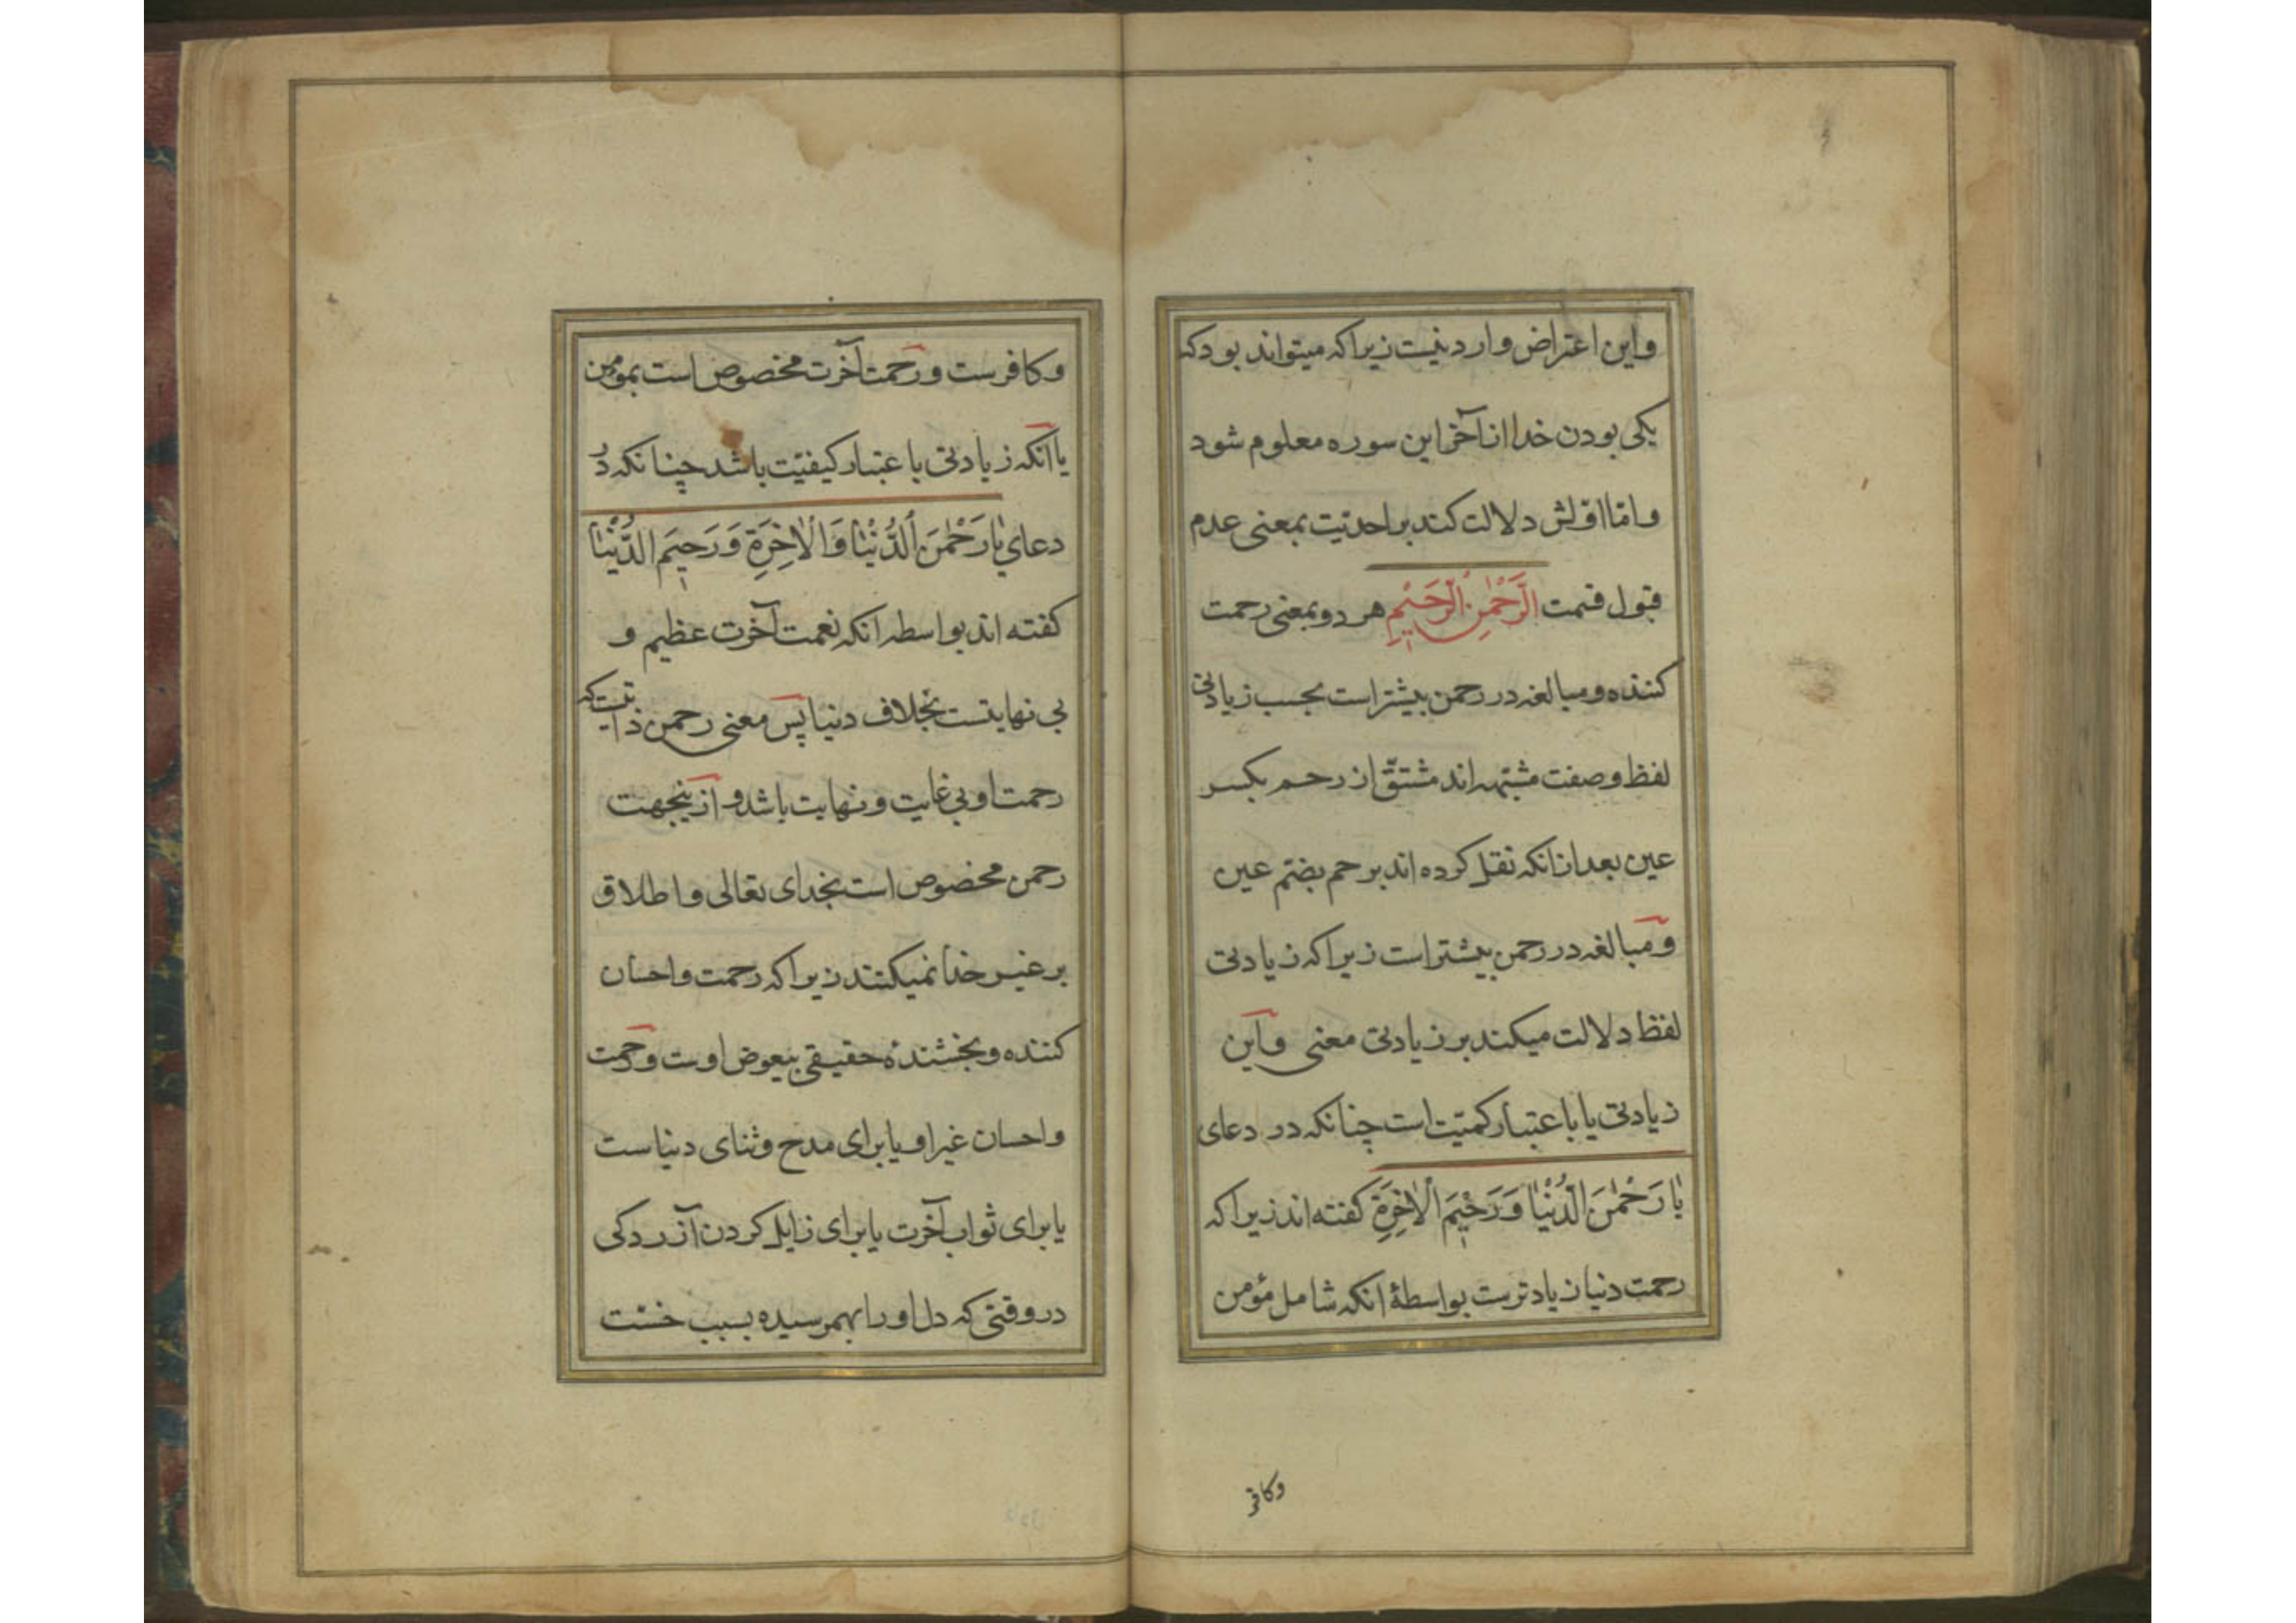 واین اعتراض وارد نیست زیرا که میتواند بود که
یکی بودن خدا از آخر این سوره معلوم شود
و امّا اوّلش دلالت کند بر احدیّت بمعنی عدم
قبول قسمت الرَّحْمٰنِ الرَّحیٖمِ هر دو بمعنی رحمت
کننده و مبالغه در رحمن بیشتر است بحسب زیادتی
لفظ و صفت مشبّهه اند مشتقّ از رحم بکسر
عین بعد از انکه نقل کرده اند برحم بضمّ عین
و مبالغه در رحمن بیشتر است زیرا که زیادتی
لفظ دلالت میکند بر زیادتی معنی و این
زیادتی یا باعتبار کمّیّت است چنانکه در دعای
یٰا رَحْمٰنَ الدُّنْیٰا وَ رَحیٖمَ الْاٰخِرَةِ کفته اند زیرا که
رحمت دنیا زیادترست بواسطهٔ انکه شامل مؤمن
وکافر
وکافرست و رحمت آخرت مخصوص است بمومن
یا آنکه زیادتی باعتبار کیفیّت باشد چنانکه در
دعای یٰا رَحْمٰنَ الدُّنْیٰا وَ الْاٰخِرَةِ وَ رَحیٖمَ الدُّنْیٰا
کفته اند بواسطه انکه نعمت آخرت عظیم و
بی نهایتست بخلاف دنیا پس معنی رحمن ذاتیست که
رحمت او بی غایت و نهایت باشد و ازینجهت
رحمن مخصوص است بخدای تعالی و اطلاق
بر غیر خدا نمیکنند زیرا که رحمت و احسان
کننده و بخشندهٔ حقیقی بیعوض اوست و رحمت
و احسان غیر او یا برای مدح و ثنای دنیاست
یا برای ثواب آخرت یا برای زایل کردن آزردکی
در وقتی که دل او را بهم رسیده بسبب خسّت